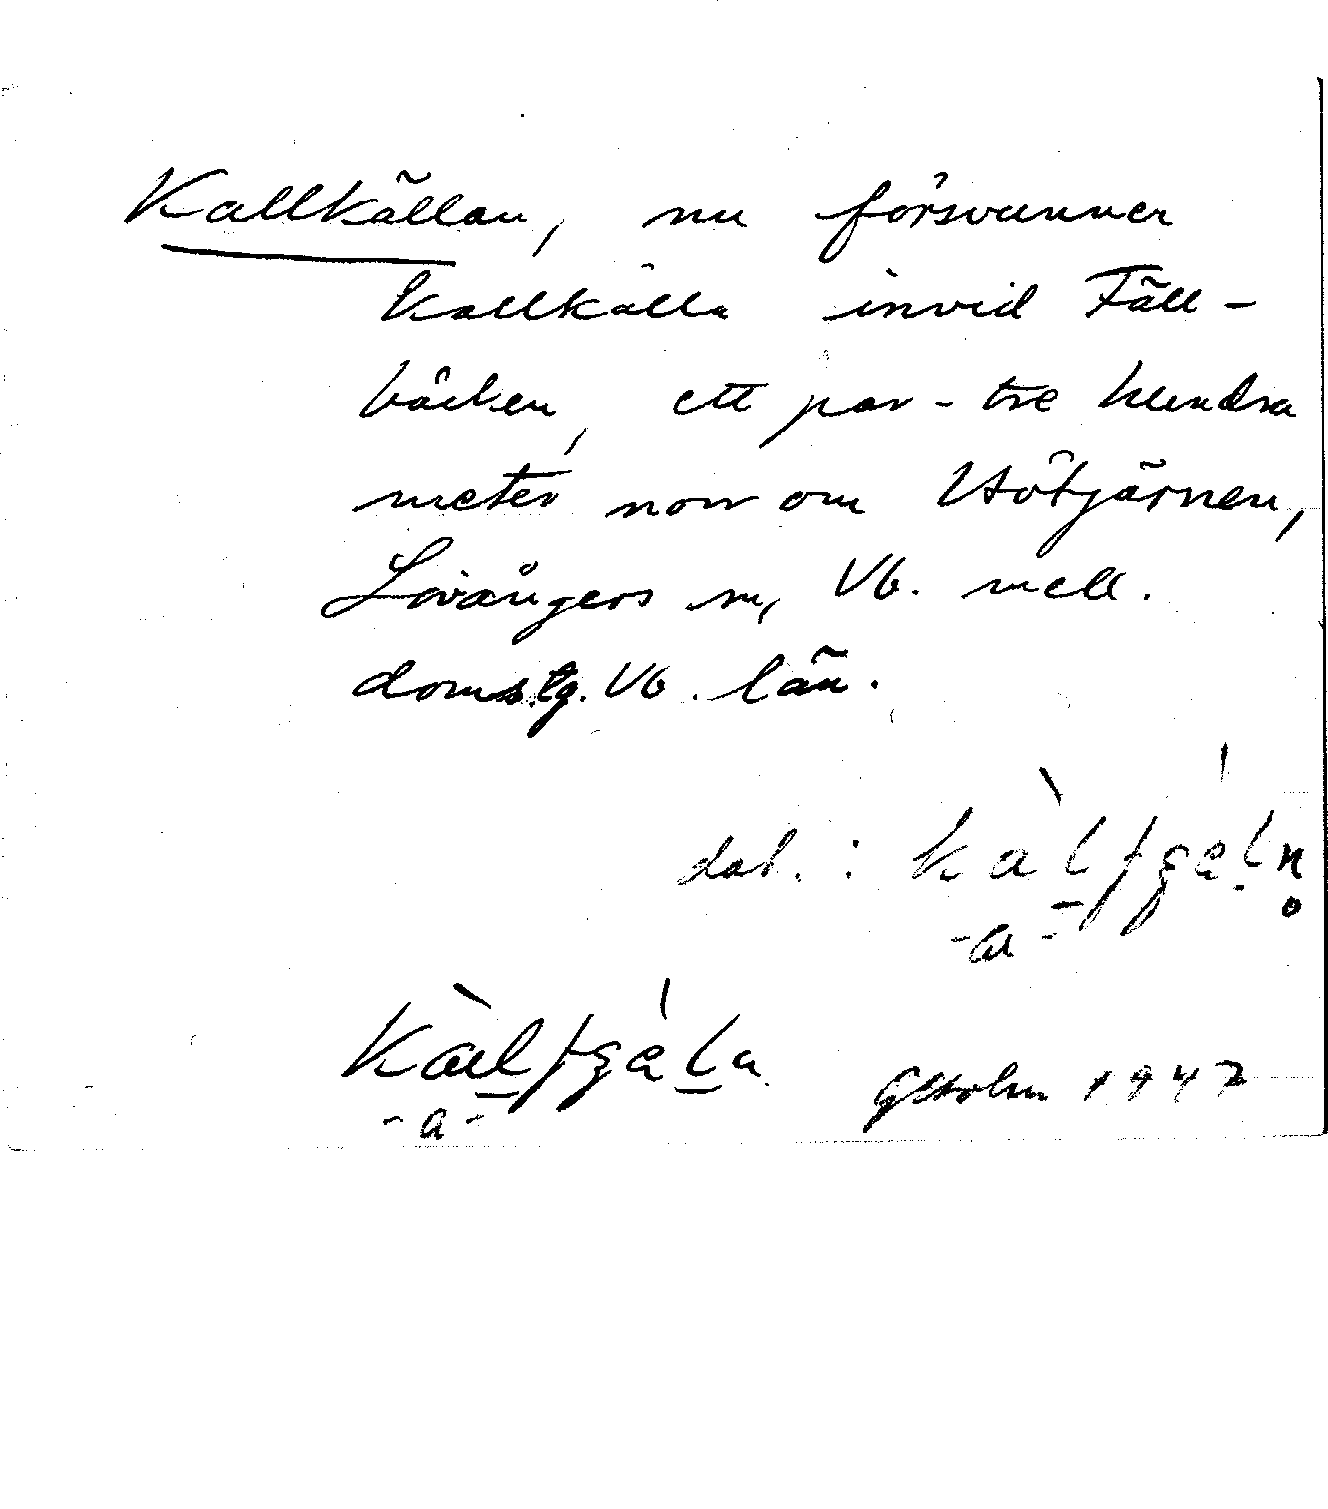 Kallkällan, nu försvunnen
kallkälla invid Fäll-
bäcken, ett par-tre hundra
meter norr om Hötjärnen,
Lövångers sn, Vb. mell.
domstg. Vb. län.
dat. :
-a-
-a-
1947